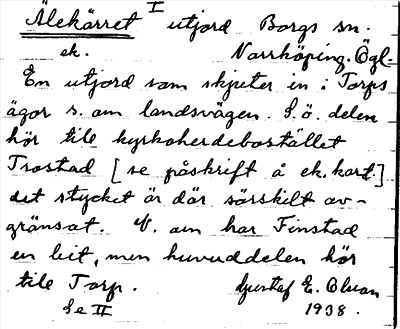 Ålekärret I utjord Borgs sn.
ek. Norrköping. Ögl.
En utjord som skjuter in i Torps
ägor s. om landsvägen. S.ö. delen
hör till kyrkoherdebostället
Trostad [se påskrift å ek. kart.]
det stycket är där särskilt av-
gränsat. V. om har Finstad
en bit, men huvuddelen hör
till Torp. Gustaf E. Olson
Se II 1938.